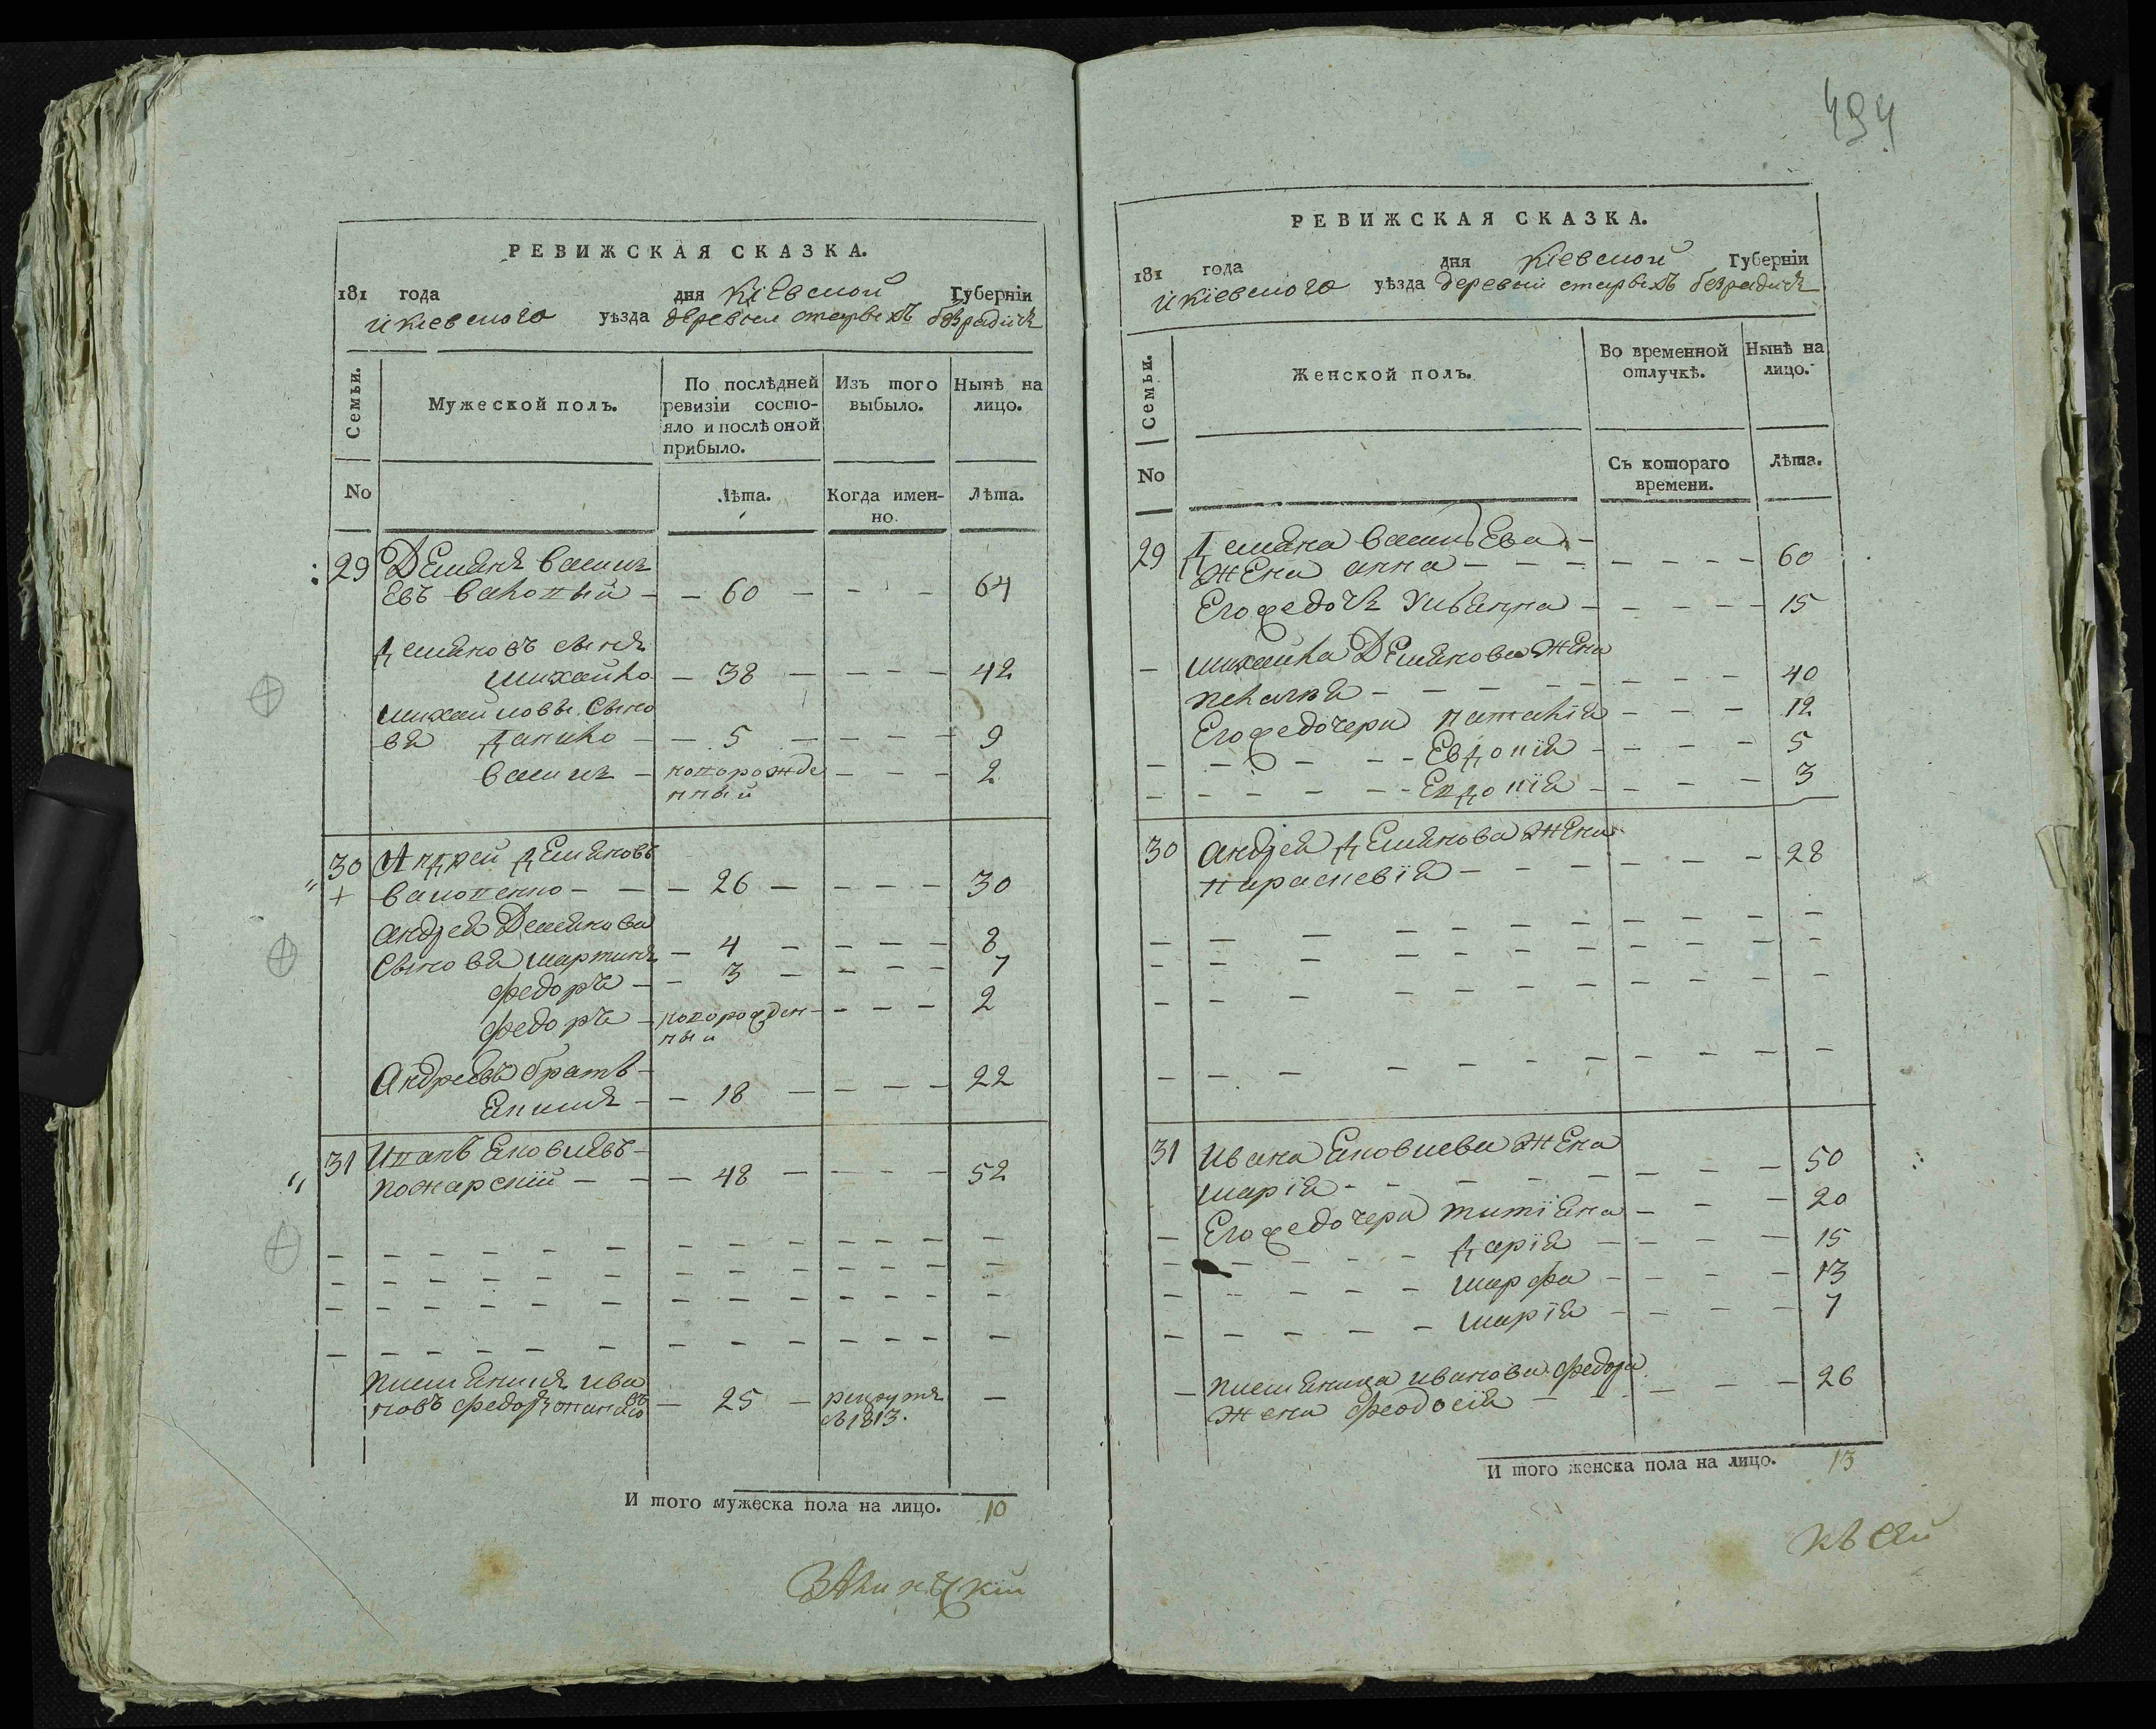 494
РЕВИЖСКАЯ СКАЗКА.
181 года дня Кіевской Губерніи
и кіевского уѣзда деревни старыхъ безрадичъ
Семьи.
Мужеской полъ.
По послѣдней ревизіи состо-
яло и послѣ оной
прибыло.
Изъ того
выбыло.
Нынѣ на
лицо.
No
Лѣта.
Когда имен-
но.
Лѣта.
29 Демянъ васил
евъ - 60 - - - - 64
Демяновъ сынъ
михайко - 38 - - - - 42
михайловы сыно
вя Данико - - 5 - - - - 9
василь - новорожде - - - 2
нный
30 Андрей Демяновъ
- - 26 - - - - 30
андрея Демянова
сыновя мартинъ - 4 - - - - 8
федоръ - - 3 - - - - 7
федоръ - новорожден - - - - 2
ный
Андреевъ братъ -
- - 18 - - - - 22
31 Иванъ Яковлевъ -
пожарскій - - - 48 - - - - 52
племяникъ ива
новъ федоръ - 25 - рекрутъ -
въ 1813.
И того мужеска пола на лицо. 10
РЕВИЖСКАЯ СКАЗКА.
181 года дня Кіевской Губерніи
и кіевского уѣзда деревни старыхъ безрадичъ
Семьи.
Женской полъ.
Во временной
отлучкѣ.
Нынѣ на
лицо.
No
Съ котораго
времени.
Лѣта.
29 Демяна васильева -
жена анна - - - - - - - 60
Его же дочь улянна - - - - - 15
- михайка Демянова жена
- - - - - - - - 40
Его же дочери наталія - - - 12
- - - - - Евдокія - - - - 5
- - - - - - Евдокія - - - - 3
30 андрея Демянова жена
параскевія - - - - - - - 28
31 Ивана Яковлева жена
марія - - - - - - - - 50
- Его же дочери титіяна - - - 20
- - - - - Дарія - - - - 15
- - - - - марфа - - - - 13
- - - - - марія - - - - 7
- племяника иванова федора
жена феодосія - - - - - - 26
И того женска пола на лицо. 13